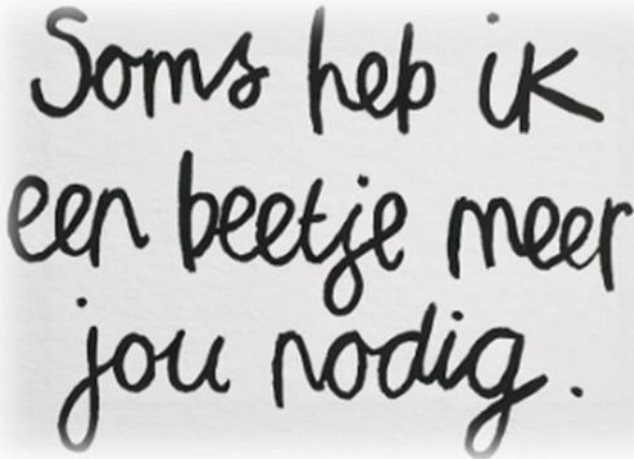 Soms heb ik
een beetje meer
jou nodig.